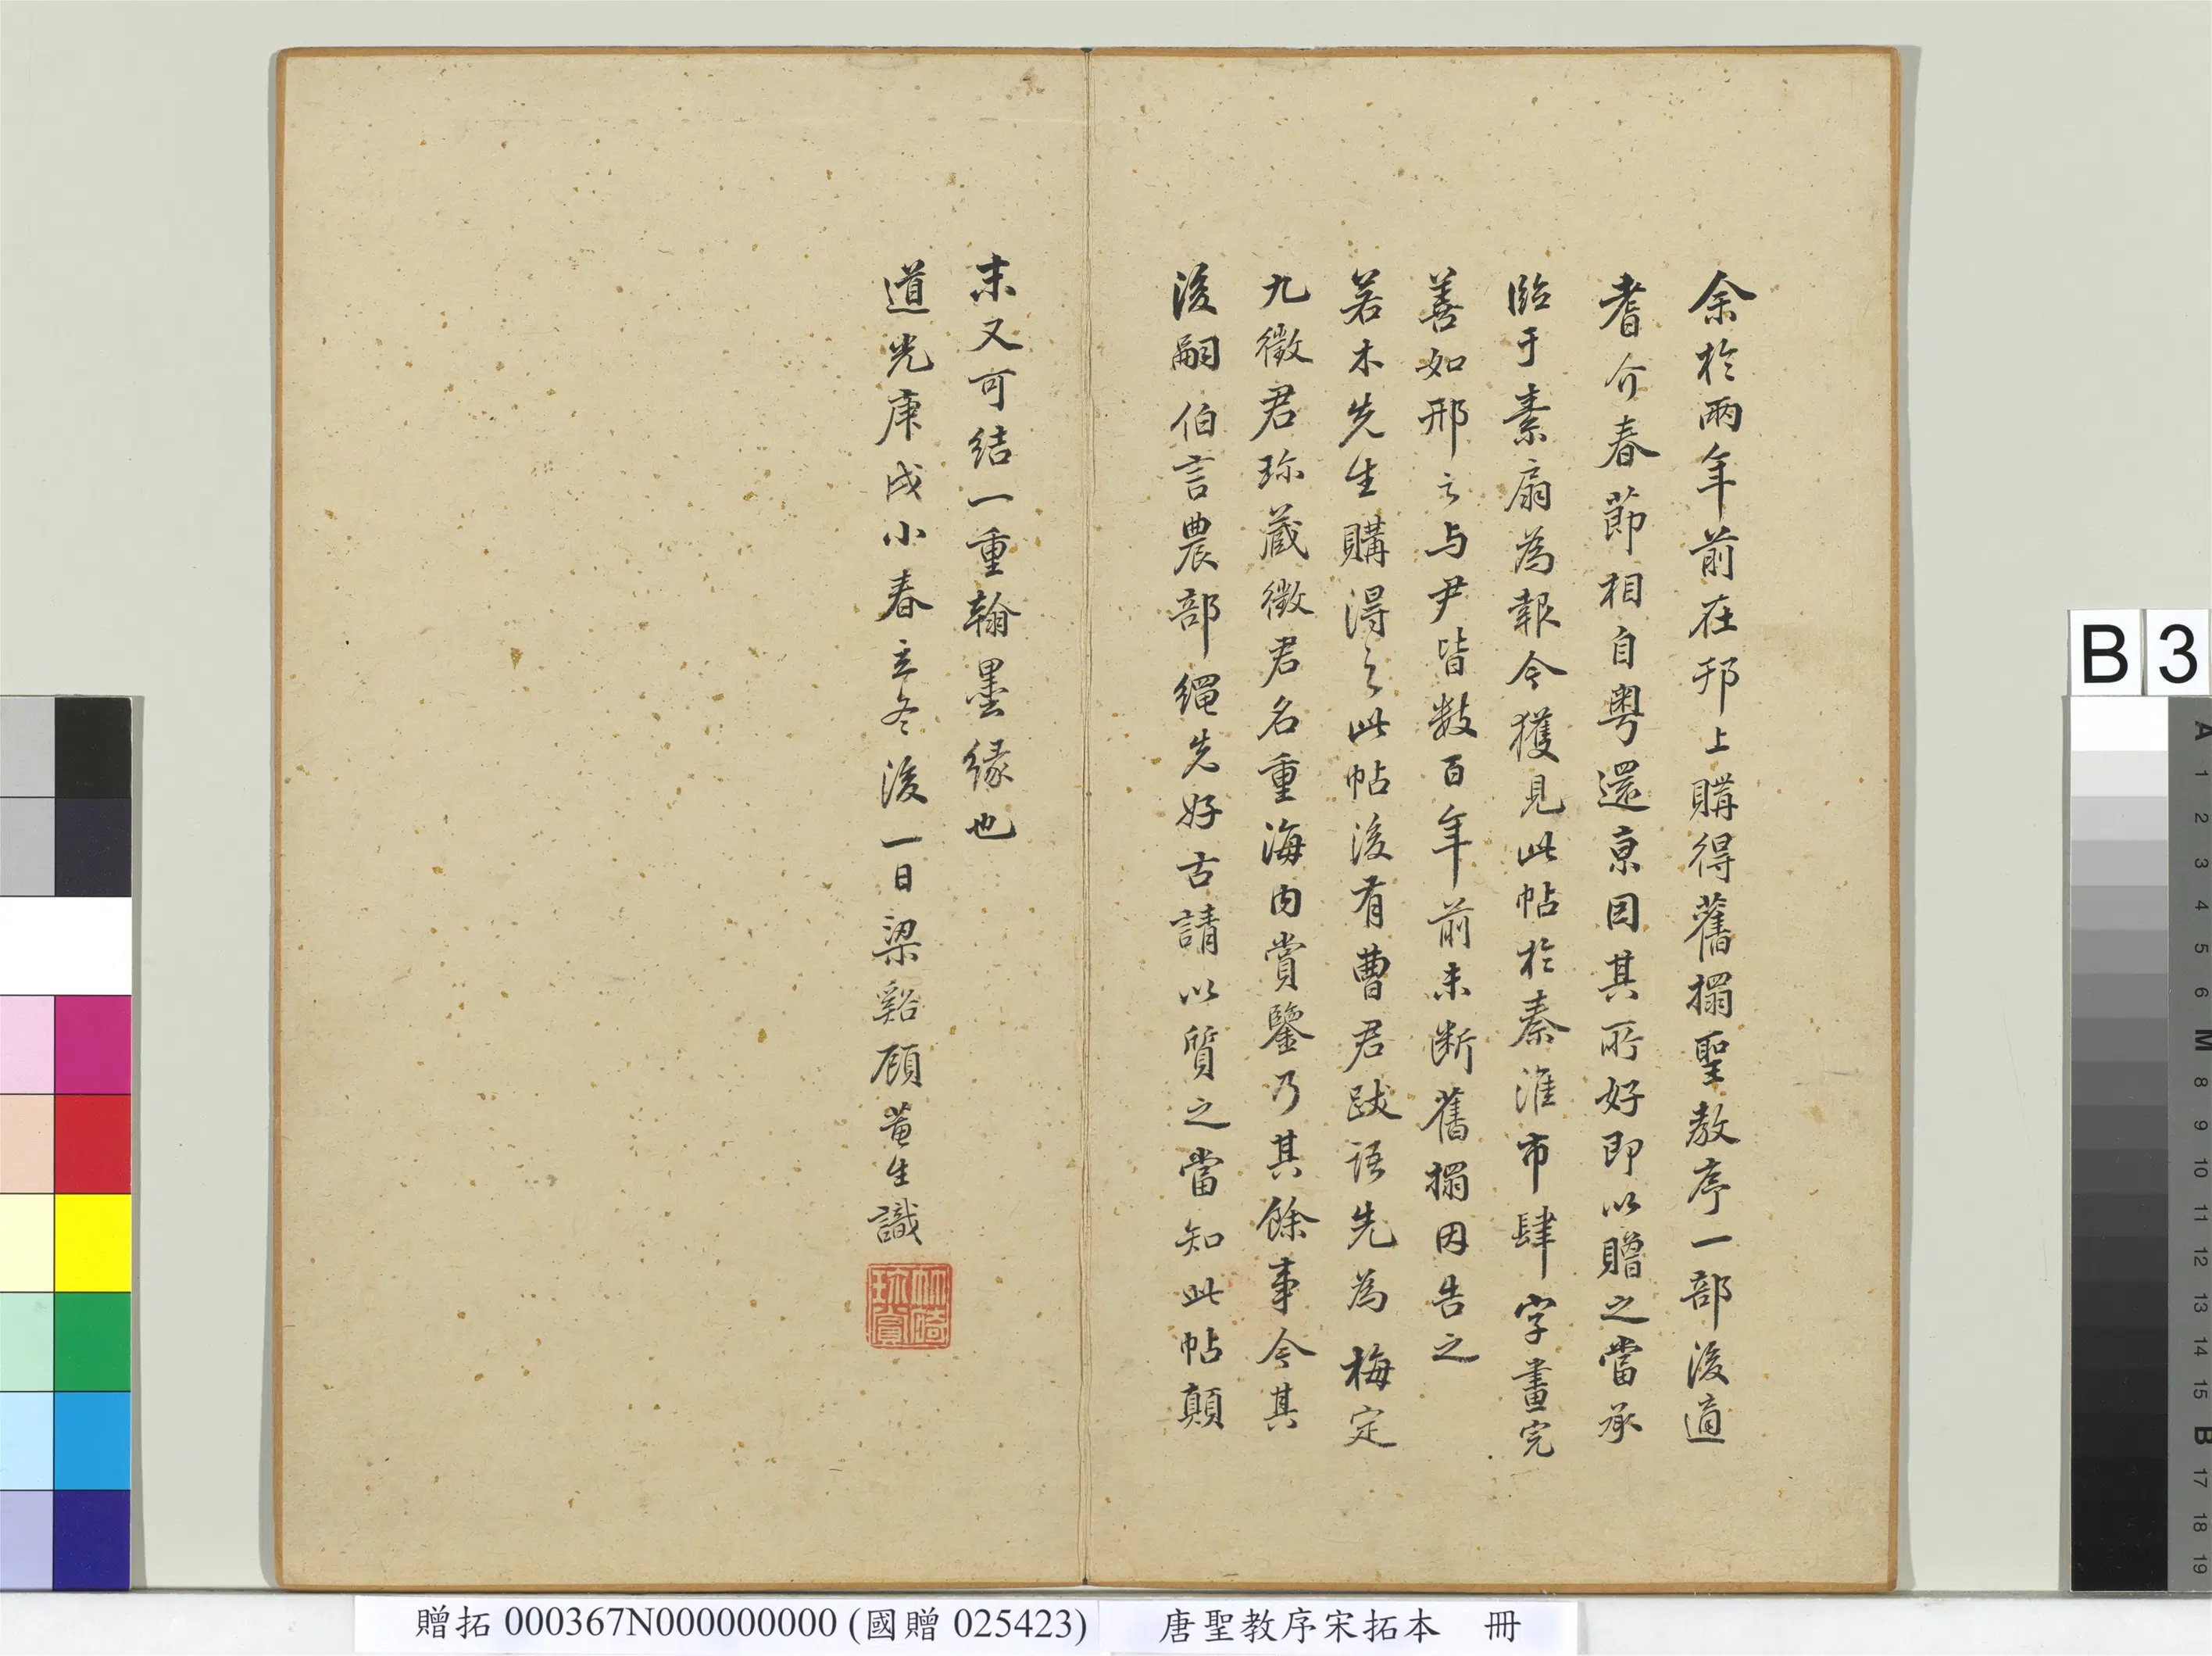 余於兩年前在邗上購得舊搨聖教序一部後適
耆介春節相自粤還京因其所好即以贈之當承
臨于素扇為報今獲見此帖於秦淮市肆字畫完
善如邢云与尹皆数百年前未断舊搨因告之
若木先生購得之此帖後有曹君跋語先為梅定
九徵君珎蔵徵君名重海内賞鑒乃其餘事今其
後嗣伯言農部繩先好古請以質之當知此帖顛
末又可结一重翰墨緣也
道光庚戌小春立冬後一日梁谿顾莤生識
珎賞
B 3
A 1 2 3 4 5 6 M 8 9 10 11 12 13 14 15 B 17 18 19
贈拓 000367N000000000 (國贈 025423)
唐聖教序宋拓本 冊